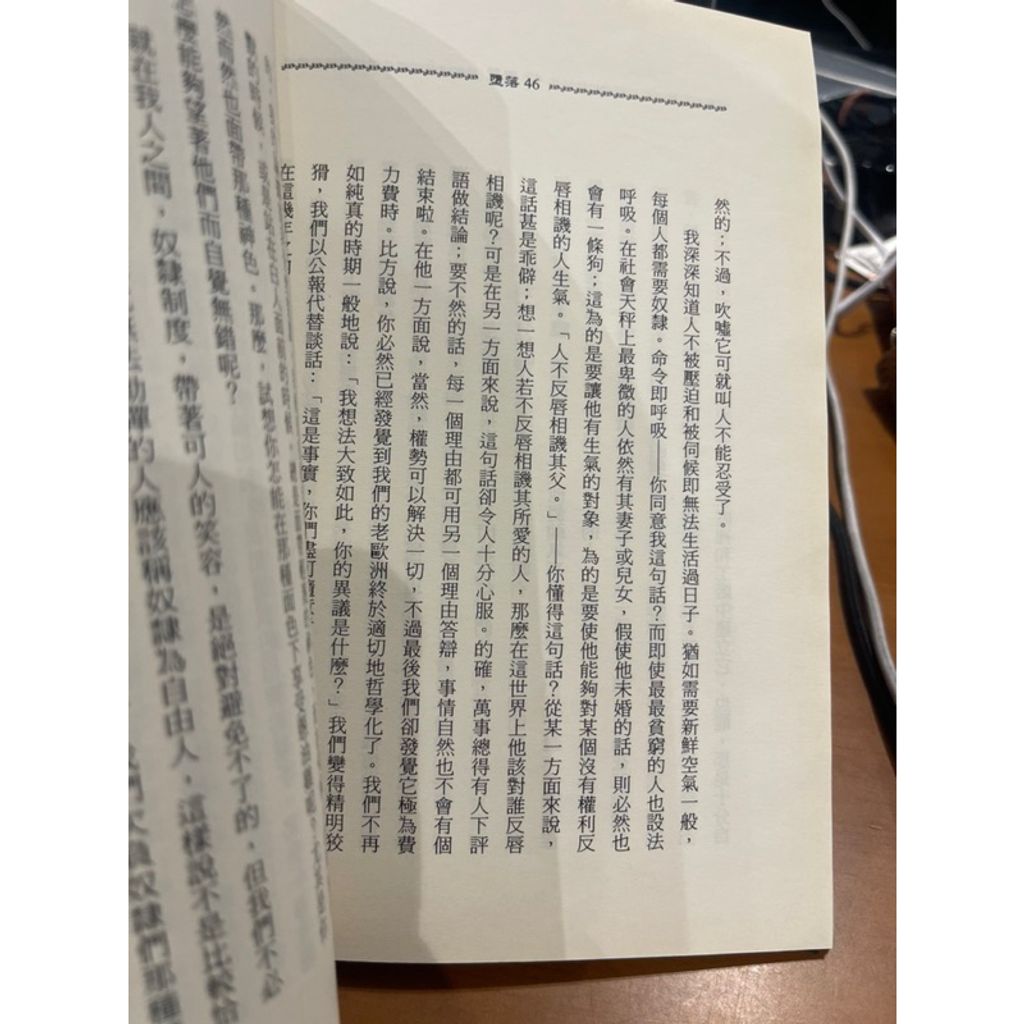 墮落 46
然的；不過，吹噓它可就叫人不能忍受了。
我深深知道人不被壓迫和被伺候即無法生活過日子。猶如需要新鮮空氣一般，
每個人都需要奴隸。命令即呼吸——你同意我這句話？而即使最最貧窮的人也設法
呼吸。在社會天秤上最卑微的人依然有其妻子或兒女，假使他未婚的話，則必然也
會有一條狗；這為的是要讓他有生氣的對象，為的是要使他能夠對某個沒有權利反
唇相譏的人生氣。「人不反唇相譏其父。」——你懂得這句話？從某一方面來說，
這話甚是乖僻；想一想人若不反唇相譏其所愛的人，那麼在這世界上他該對誰反唇
相譏呢？可是在另一方面來說，這句話卻令人十分心服。的確，萬事總得有人下評
語做結論；要不然的話，每一個理由都可用另一個理由答辯，事情自然也不會有個
結束啦。在他一方面說，當然，權勢可以解決一切，不過最後我們卻發覺它極為費
力費時。比方說，你必然已經發覺到我們的老歐洲終於適切地哲學化了。我們不再
如純真的時期一般地說：「我想法大致如此，你的異議是什麼？」我們變得精明狡
猾，我們以公報代替談話：「這是事實，你們儘可
在這幾年之
然而然也面帶那種神色。那麼，試想你怎能在那種面色下
怎麼能夠望著他們而自覺無錯呢？
就在我人之間，奴隸制度，帶著可人的笑容，是絕對避免不了的，但我們不必
的人應該稱奴隸為自由人，這樣說不是比較恰
奴隸們那種